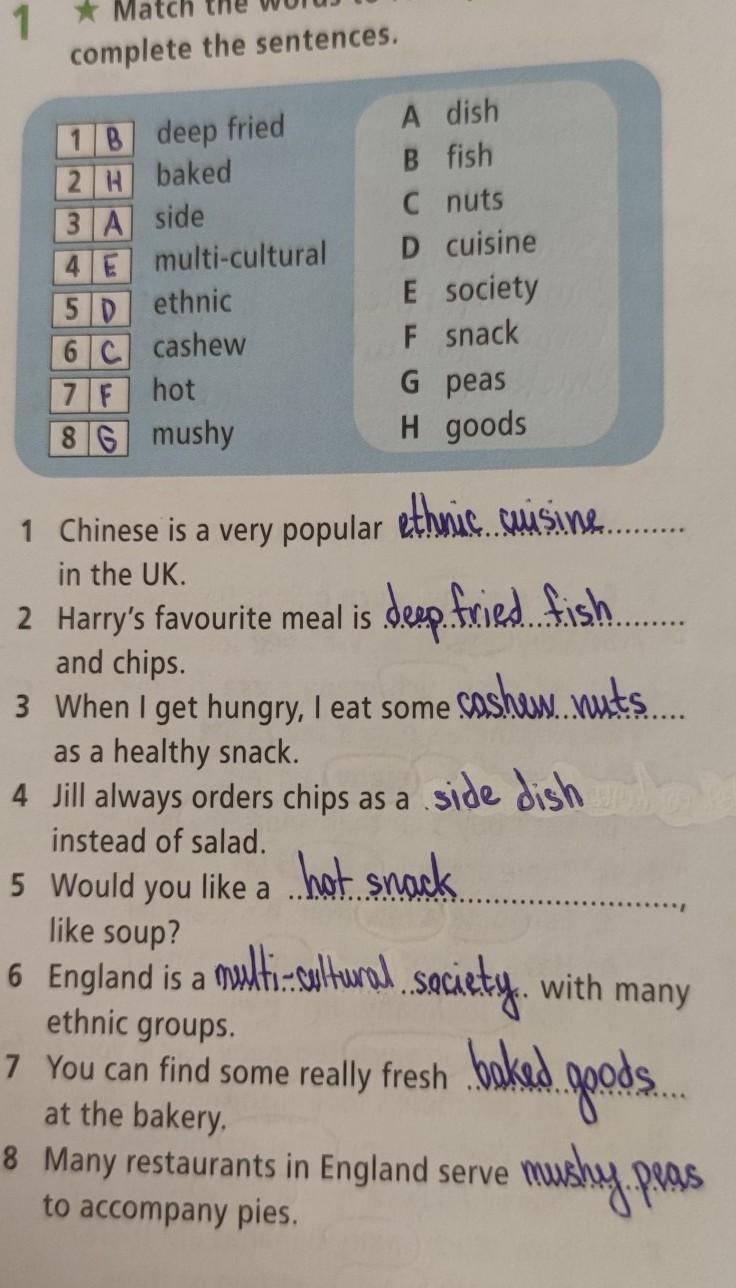 1 ★ Match the words to
complete the sentences.
1 B deep fried
2 H baked
3 A side
4 E multi-cultural
5 D ethnic
6 C cashew
7 F hot
8 G mushy
A dish
B fish
C nuts
D cuisine
E society
F snack
G peas
H goods
1 Chinese is a very popular ethnic cuisine
in the UK.
2 Harry's favourite meal is deep fried fish
and chips.
3 When I get hungry, I eat some cashew nuts
as a healthy snack.
4 Jill always orders chips as a side dish
instead of salad.
5 Would you like a hot snack,
like soup?
6 England is a multi-cultural society. with many
ethnic groups.
7 You can find some really fresh baked goods
at the bakery.
8 Many restaurants in England serve mushy peas
to accompany pies.